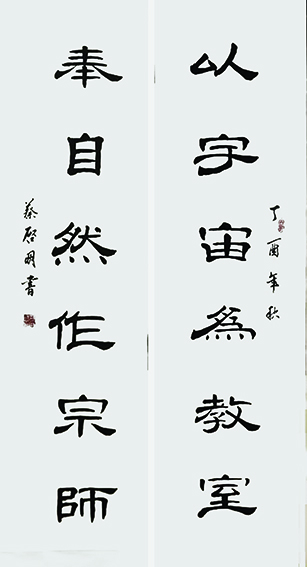 以宇宙為教室
丁酉年秋
奉自然作宗師
蔡啓明書